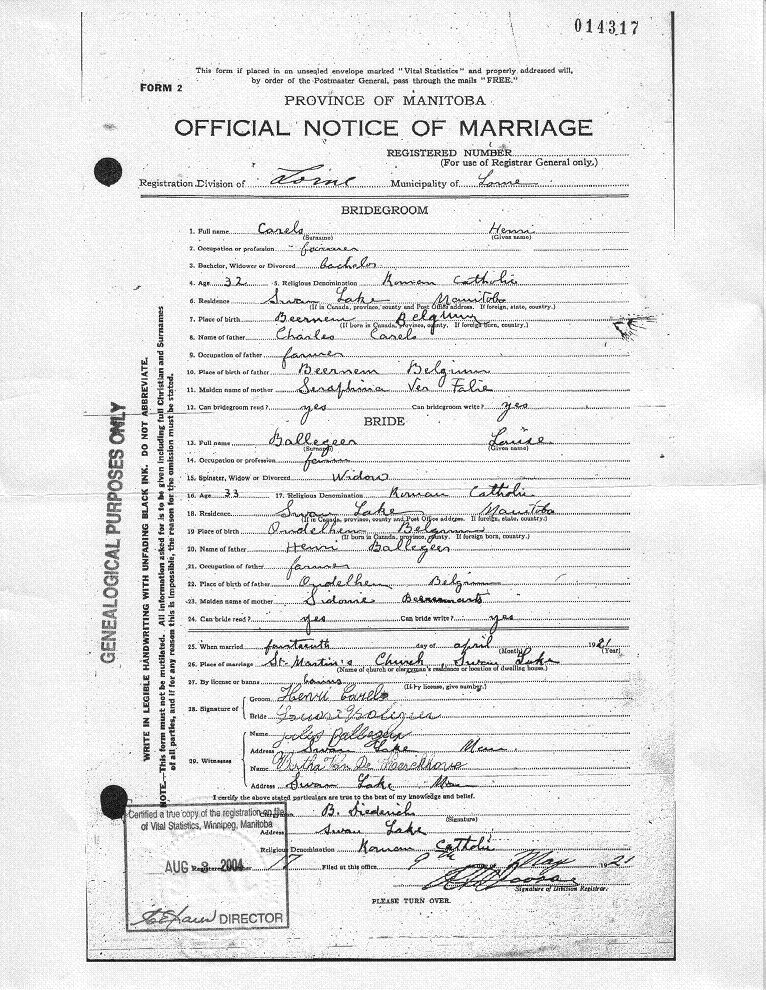 014317
This form if placed in an unsealed envelope marked "Vital Statistics" and properly addressed will,
by order of the Postmaster General, pass through the mails "FREE."
FORM 2
PROVINCE OF MANITOBA
OFFICIAL NOTICE OF MARRIAGE
REGISTERED NUMBER
(For use of Registrar General only.)
Registration Division of Lorne Municipality of Lorne
BRIDEGROOM
1. Full name Carels Henri
(Surname) (Given name)
2. Occupation or profession farmer
3. Bachelor, Widower or Divorced bachelor
4. Age 32 5. Religious Denomination Roman Catholic
6. Residence Swan Lake Manitoba
(If in Canada, province, county and Post Office address. If foreign, state, country.)
7. Place of birth Beernem Belgium
(If born in Canada, province, county. If foreign born, country.)
8. Name of father Charles Carels
9. Occupation of father farmer
10. Place of birth of father Beernem Belgium
11. Maiden name of mother Seraphina Ver Falie
12. Can bridegroom read? yes Can bridegroom write? yes
BRIDE
13. Full name Ballegeer Louise
(Surname) (Given name)
14. Occupation or profession
15. Spinster, Widow or Divorced Widow
16. Age 33 17. Religious Denomination Roman Catholic
18. Residence Swan Lake Manitoba
(If in Canada, province, county and Post Office address. If foreign, state, country.)
19 Place of birth Oudelhem Belgium
(If born in Canada, province, county. If foreign born, country.)
20. Name of father Henri Ballegeer
21. Occupation of father farmer
22. Place of birth of father Oudelhem Belgium
23. Maiden name of mother Sidonie
24. Can bride read? yes Can bride write? yes
25. When married fourteenth day of april 1921
(Month) (Year)
26. Place of marriage St-Martin's Church, Swan Lake
(Name of church or clergyman's residence or location of dwelling house.)
27. By license or banns banns
(If by license, give number.)
28. Signature of
Groom Henri Carels
Bride
29. Witnesses
Name Jules Ballegeer
Address Swan Lake Man
Name Van De Kerckhove
Address Swan Lake Man
I certify the above stated particulars are true to the best of my knowledge and belief.
B. Diederichs
(Signature)
Address Swan Lake
Religious Denomination Roman Catholic
Registered 17 Filed at this office 9th May 1921
Signature of Division Registrar.
PLEASE TURN OVER.
GENEALOGICAL PURPOSES ONLY
WRITE IN LEGIBLE HANDWRITING WITH UNFADING BLACK INK. DO NOT ABBREVIATE.
NOTE.—This form must not be mutilated. All information asked for is to be given including full Christian and Surnames
of all parties, and if for any reason this is impossible, the reason for the omission must be stated.
Certified a true copy of the registration on file
of Vital Statistics, Winnipeg, Manitoba
AUG 3 2004
DIRECTOR